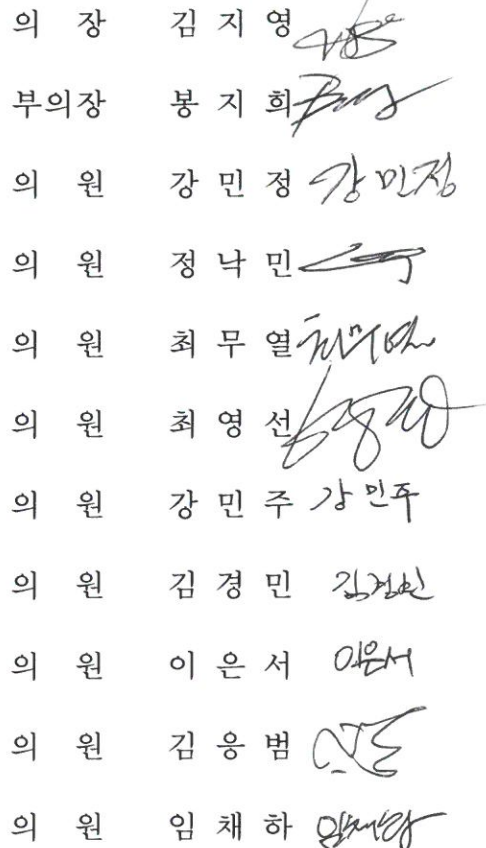 의 장 김 지 영
부의장 봉 지 희
의 원 강 민 정 강민정
의 원 정 낙 민
의 원 최 무 열 최무열
의 원 최 영 선
의 원 강 민 주 강민주
의 원 김 경 민 김경민
의 원 이 은 서 이은서
의 원 김 응 범
의 원 임 채 하